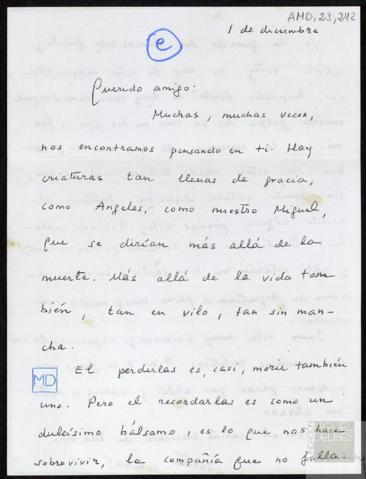 AMD, 23, 242
1 de diciembre
e
Querido amigo:
Muchas, muchas veces,
nos encontramos pensando en ti. Hay
criaturas tan llenas de gracia,
como Angeles, como nuestro Miguel,
que se dirían más allá de la
muerte. Más allá de la vida tam-
bién, tan en vilo, tan sin man-
cha.
MD
El perderlas es, casi, morir también
uno. Pero el recordarlas es como un
dulcísimo bálsamo, es lo que nos hace
sobrevivir, la compañía que no falla.
DELIBES